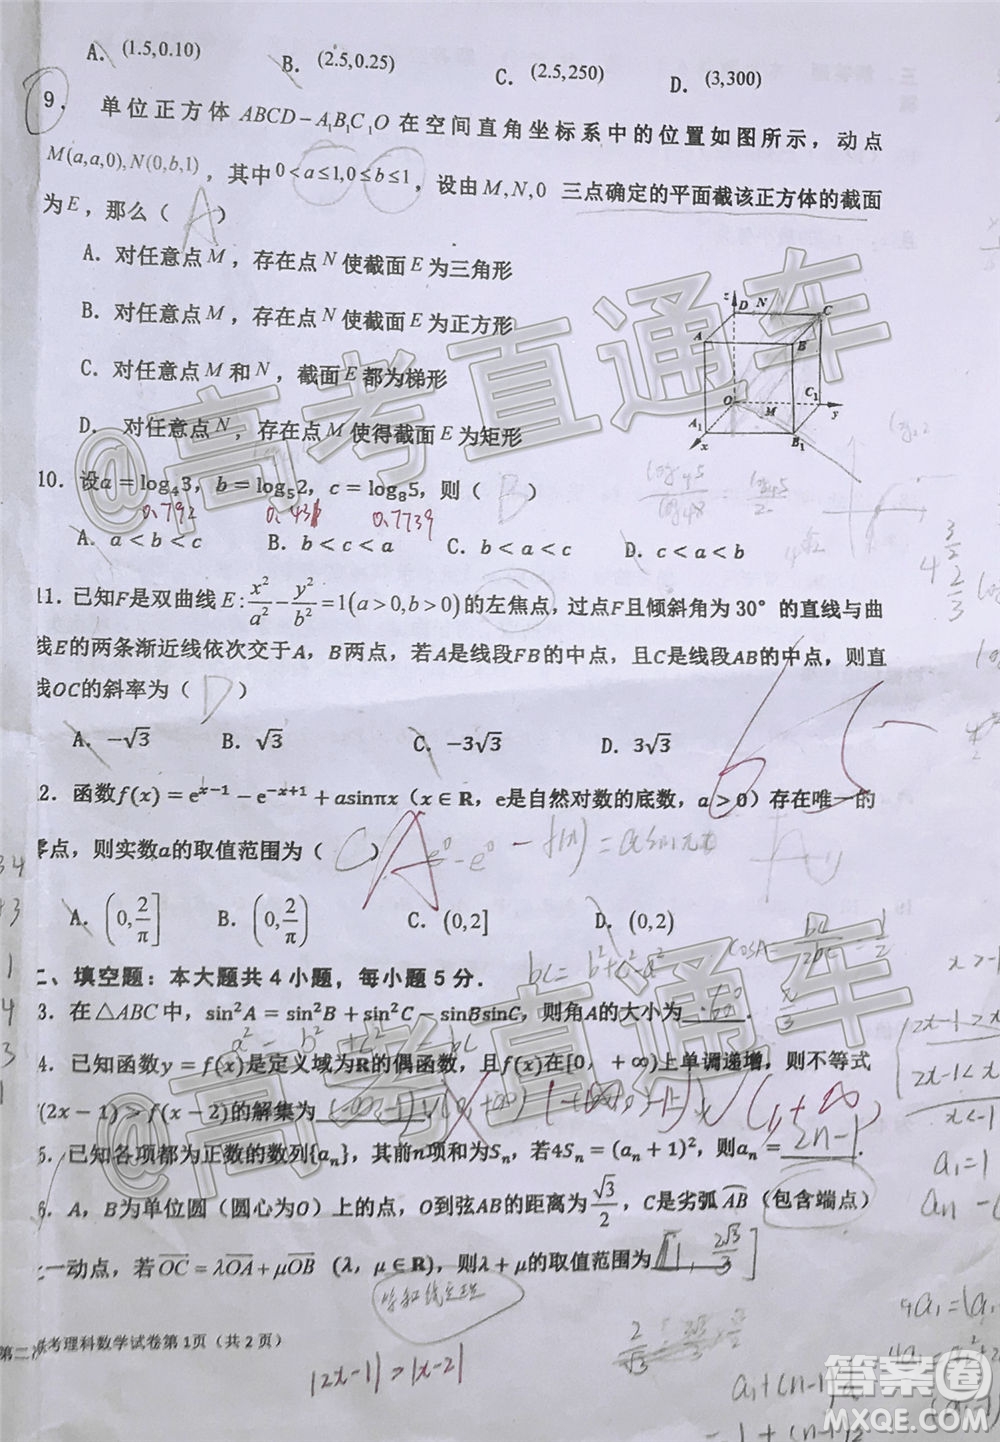 A. (1.5,0.10) B. (2.5,0.25) C. (2.5,250) D. (3,300)
9. 单位正方体 ABCD－A₁B₁C₁O 在空间直角坐标系中的位置如图所示，动点
M(a,a,0),N(0,b,1)，其中0<a≤1,0≤b≤1，设由 M,N,0 三点确定的平面截该正方体的截面
为E，那么（A）
A. 对任意点 M，存在点 N 使截面 E 为三角形
B. 对任意点 M，存在点 N 使截面 E 为正方形
C. 对任意点 M 和 N，截面 E 都为梯形
D. 对任意点 N，存在点 M 使得截面 E 为矩形
z D N C
A B
O C₁ y
M
A₁ x B₁
10. 设a＝log₄3，b＝log₅2，c＝log₈5，则（B）
0.792 0.431 0.7739
A. a＜b＜c B. b＜c＜a C. b＜a＜c D. c＜a＜b
11. 已知F是双曲线 E: x²/a² − y²/b² =1(a>0,b>0)的左焦点，过点F且倾斜角为30°的直线与曲
线E的两条渐近线依次交于A，B两点，若A是线段FB的中点，且C是线段AB的中点，则直
线OC的斜率为（D）
A. −√3 B. √3 C. −3√3 D. 3√3
2. 函数f(x)＝eˣ⁻¹－e⁻ˣ⁺¹＋asinπx（x∈R，e是自然对数的底数，a＞0）存在唯一的
零点，则实数a的取值范围为（C）A
e⁰－e⁰ －f(x)＝asinπx
A. (0, 2/π] B. (0, 2/π) C. (0,2] D. (0,2)
二、填空题：本大题共4小题，每小题5分.
bc＝b²+c²-a² cosA＝bc/2bc＝1/2
3. 在△ABC中，sin²A＝sin²B＋sin²C－sinBsinC，则角A的大小为 60° π/3.
a² = b² + c² − bc
4. 已知函数y＝f(x)是定义域为R的偶函数，且f(x)在[0，＋∞)上单调递增，则不等式
f(2x－1)＞f(x－2)的解集为 (-∞,-1)∪(1,+∞)
5. 已知各项都为正数的数列{aₙ}，其前n项和为Sₙ，若4Sₙ＝(aₙ＋1)²，则aₙ＝2n−1.
6. A，B为单位圆（圆心为O）上的点，O到弦AB的距离为√3/2，C是劣弧AB（包含端点）
上一动点，若OC＝λOA＋μOB（λ，μ∈R），则λ＋μ的取值范围为[1, 2√3/3]
等和线定理
第二次联考理科数学试卷第1页（共2页）
|2x-1|>|x-2|
@高考直通车
@高考直通车
答案圈
MXQE.COM